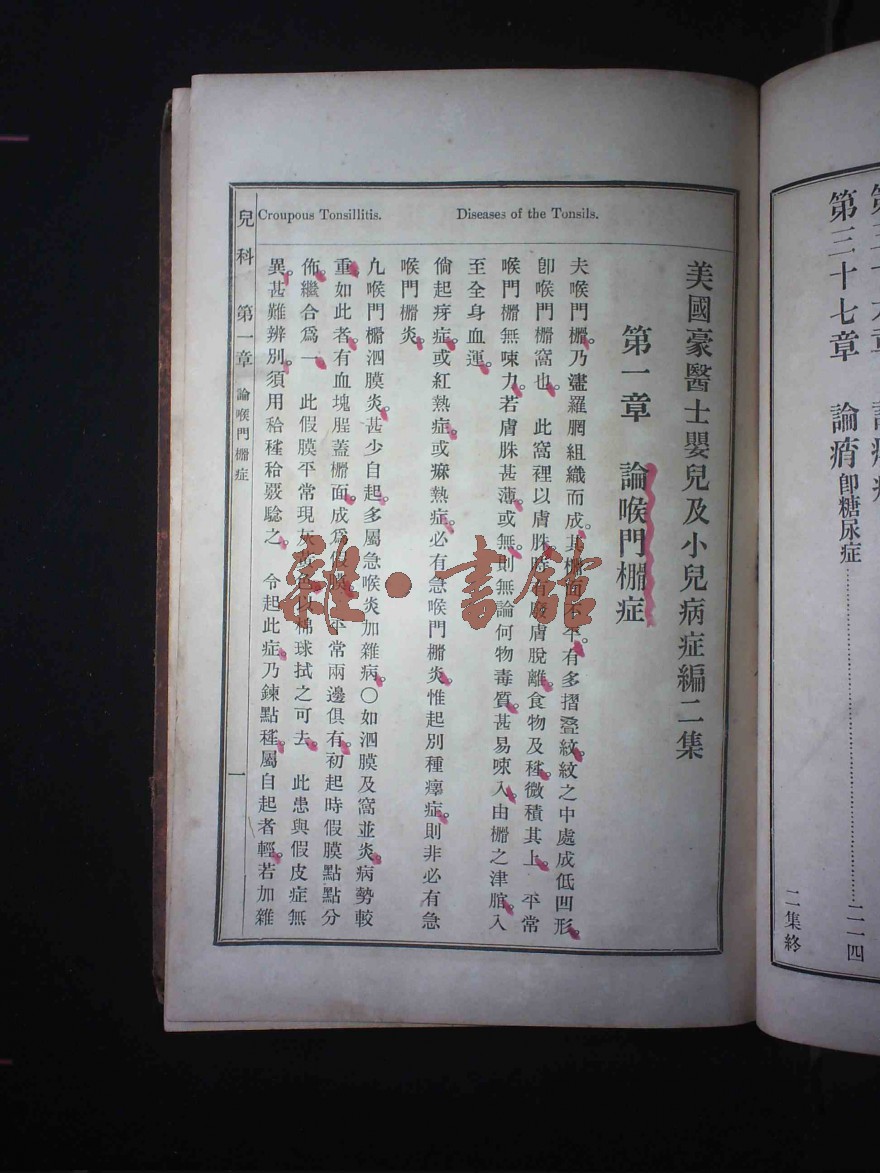 第三十七章 論痟即糖尿症……二一四
二集終
Diseases of the Tonsils.
Croupous Tonsillitis.
美國豪醫士嬰兒及小兒病症編二集
第一章 論喉門橍症
夫喉門橍。乃盡羅網組織而成。其橍面不平。有多摺疊紋紋之中處成低凹形。
卽喉門橍窩也。 此窩裡以膚脄。時有廢膚脫離。食物及秏。微積其上。 平常
喉門橍無唻力。若膚脄甚薄。或無。則無論何物毒質。甚易唻入。由橍之津館。入
至全身血運。
倘起疨症。或紅熱症。或痳熱症。必有急喉門橍炎。惟起別種瘰症。則非必有急
喉門橍炎。
凢喉門橍泗膜炎。甚少自起。多屬急喉炎加雜病。〇如泗膜及窩並炎。病勢較
重。如此者。有血塊脭蓋橍面。成爲假膜。平常兩邊俱有。初起時假膜點點分
佈。繼合爲一。 此假膜平常現灰黃色。以棉球拭之可去。 此患與假皮症無
異。甚難辨別。須用驗之。 令起此症。乃鍊點秏。屬自起者輕。若加雜
兒科 第一章 論喉門橍症 一
雜·書館